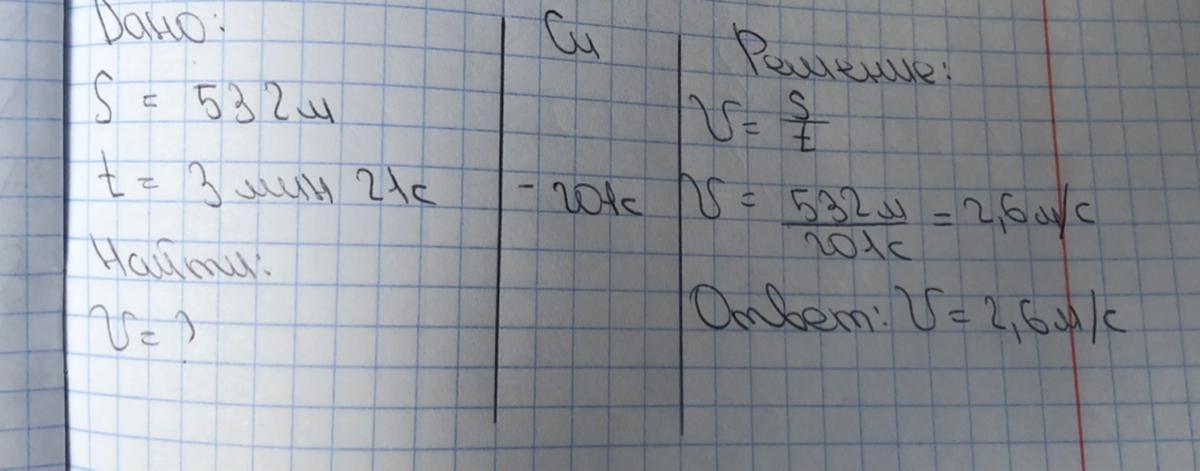 Дано:
S = 532м
t = 3 мин 21с
Найти:
V = ?
Си
- 201с
Решение:
V = S/t
V = 532м/201с = 2,6м/с
Ответ: V = 2,6м/с